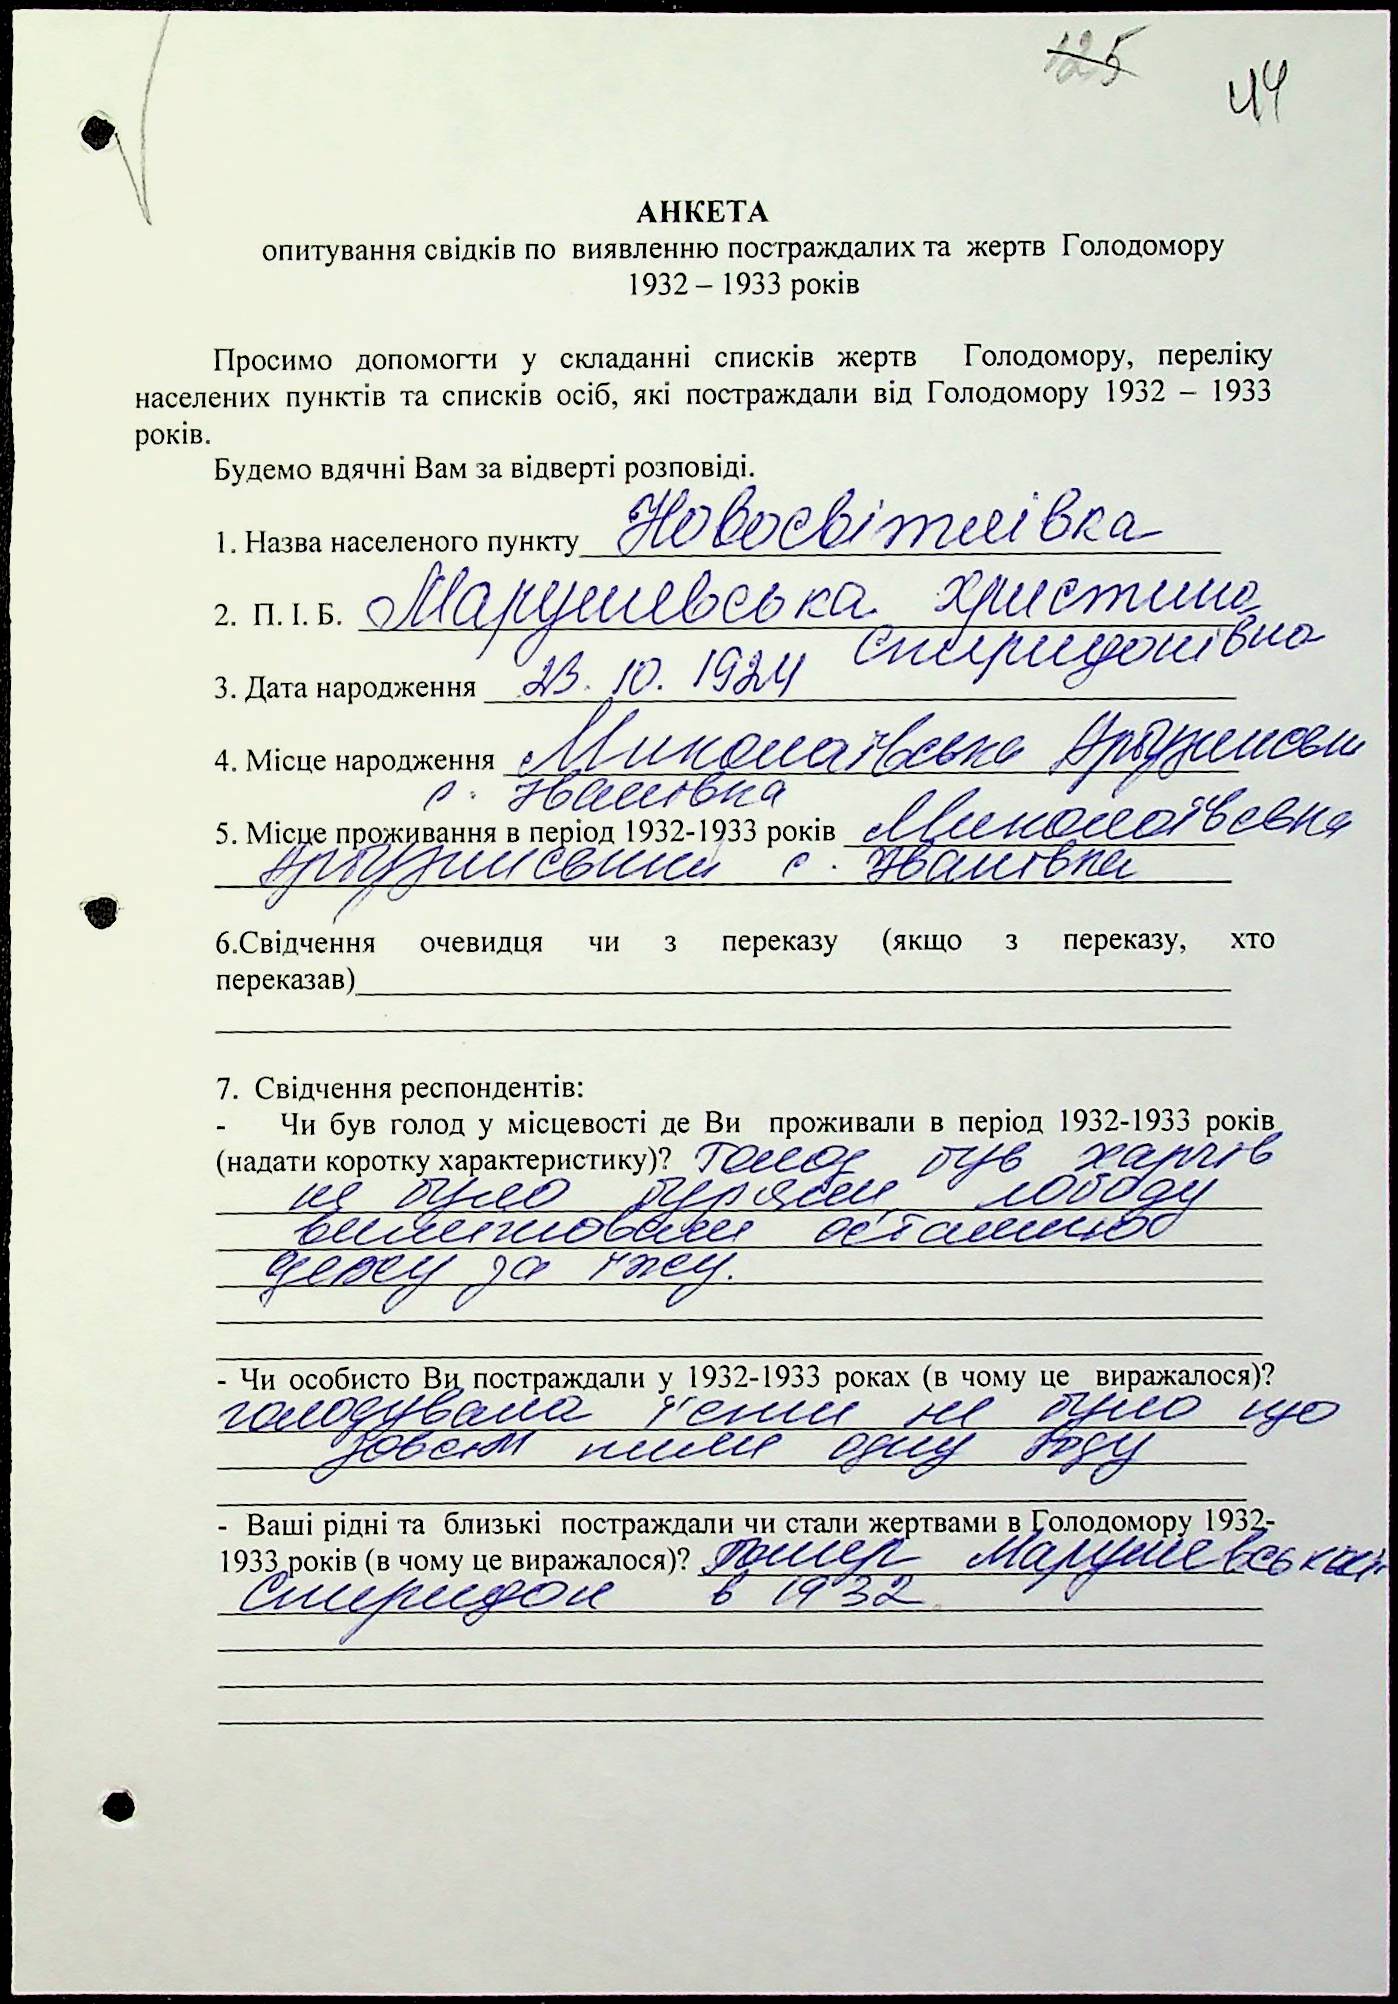 125
44
АНКЕТА
опитування свідків по виявленню постраждалих та жертв Голодомору
1932 – 1933 років
Просимо допомогти у складанні списків жертв Голодомору, переліку
населених пунктів та списків осіб, які постраждали від Голодомору 1932 – 1933
років.
Будемо вдячні Вам за відверті розповіді.
1. Назва населеного пункту Новосвітлівка
2. П. І. Б. Марушевська Христина
Спиридонівна
3. Дата народження 23. 10. 1924
4. Місце народження Миколаївська
с. Іванівка
5. Місце проживання в період 1932-1933 років Миколаївська
с. Іванівка
6.Свідчення очевидця чи з переказу (якщо з переказу, хто
переказав)
7. Свідчення респондентів:
- Чи був голод у місцевості де Ви проживали в період 1932-1933 років
(надати коротку характеристику)? Голод був харчів
не було лободу
останню
за їжу.
- Чи особисто Ви постраждали у 1932-1933 роках (в чому це виражалося)?
голодувала їсти не було що
зовсем пили одну воду
- Ваші рідні та близькі постраждали чи стали жертвами в Голодомору 1932-
1933 років (в чому це виражалося)? Помер Марушевський
Спиридон в 1932